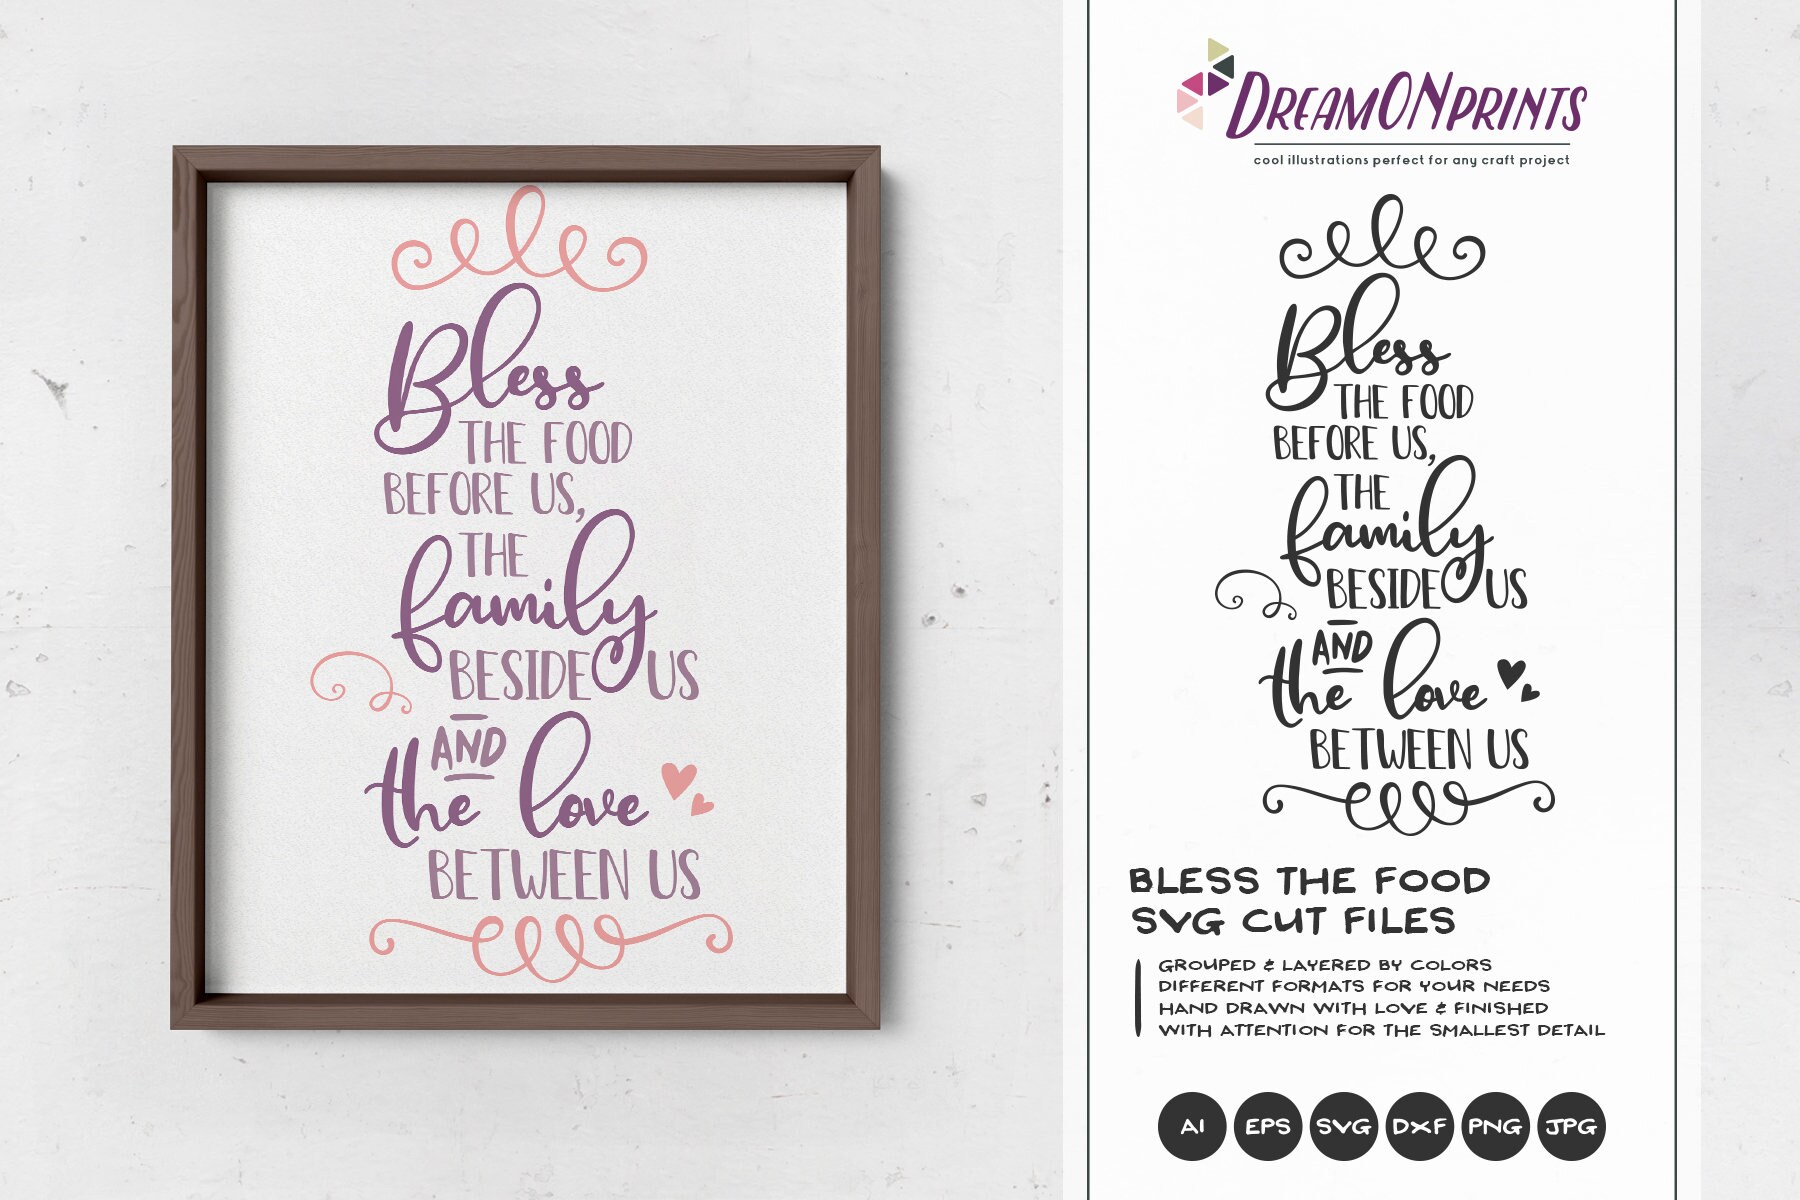 Bless
THE FOOD
BEFORE US,
THE
family
BESIDE US
AND
the love
BETWEEN US
DREAMONPRINTS
cool illustrations perfect for any craft project
Bless
THE FOOD
BEFORE US,
THE
family
BESIDE US
AND
the love
BETWEEN US
BLESS THE FOOD
SVG CUT FILES
GROUPED & LAYERED BY COLORS
DIFFERENT FORMATS FOR YOUR NEEDS
HAND DRAWN WITH LOVE & FINISHED
WITH ATTENTION FOR THE SMALLEST DETAIL
AI EPS SVG DXF PNG JPG